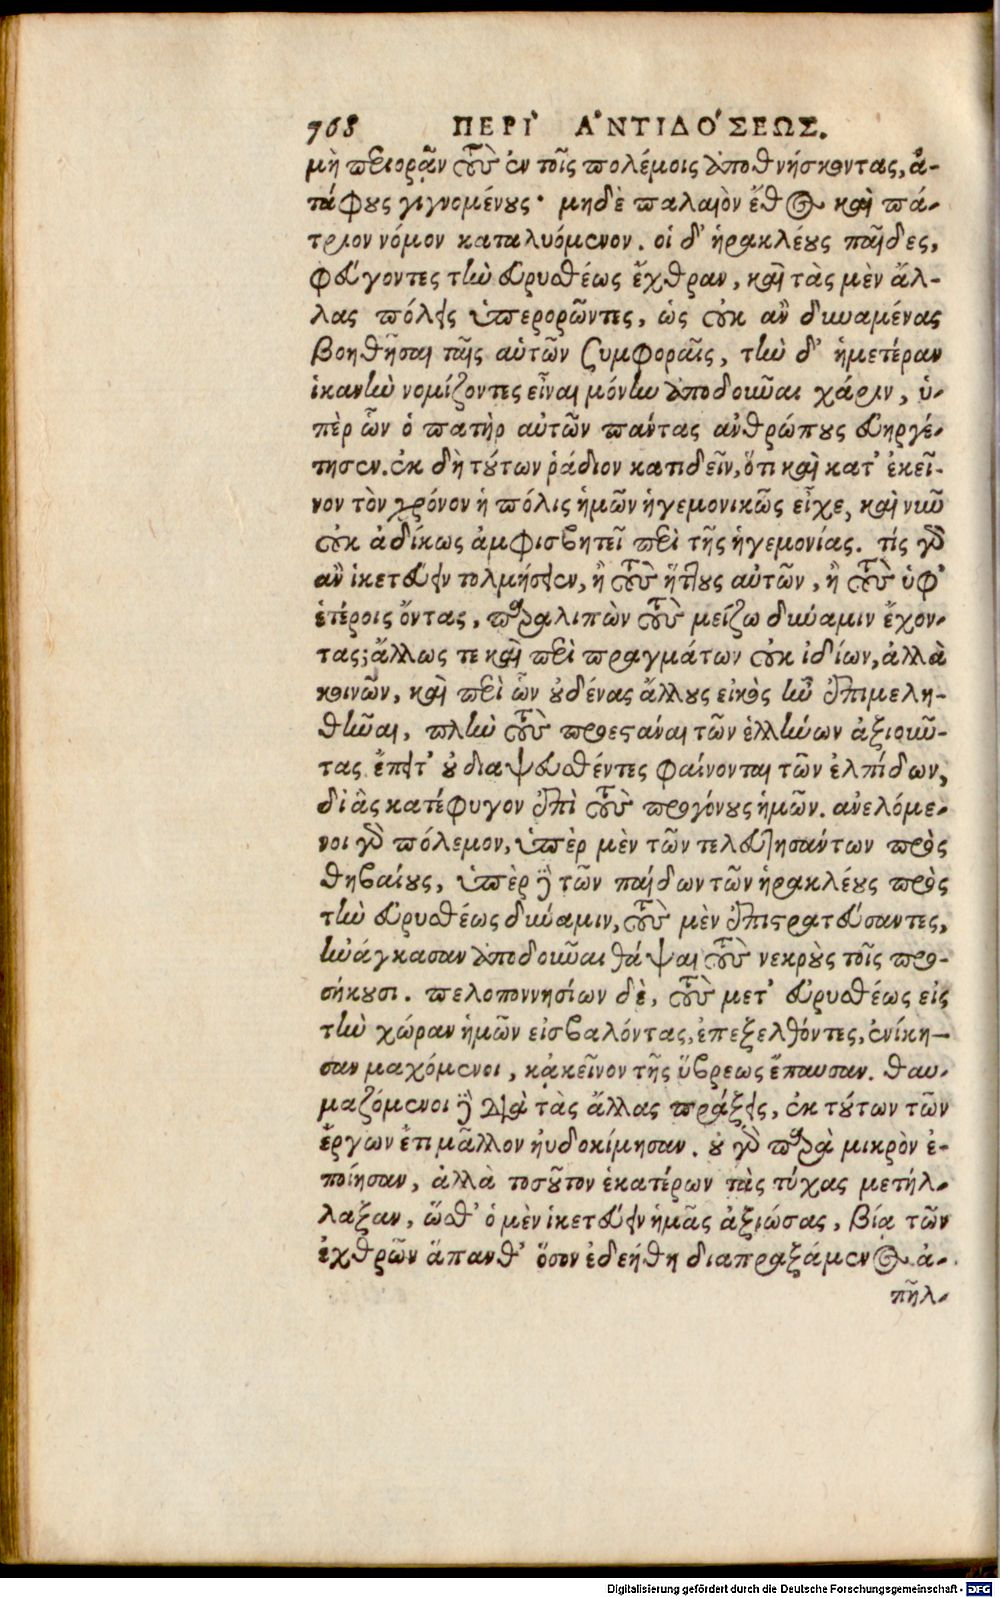 768 ΠΕΡΙ' Α'ΝΤΙΔΟ'ΣΕΩΣ.
μὴ περιορᾶν τοὺς ἐν τοῖς πολέμοις ἀποθνήσκοντας, ἀ-
τάφους γιγνομένους· μηδὲ παλαιὸν ἔθος καὶ πά-
τριον νόμον καταλυόμενον. οἱ δ' ἡρακλέους παῖδες,
φεύγοντες τὴν εὐρυσθέως ἔχθραν, καὶ τὰς μὲν ἄλ-
λας πόλεις ὑπερορῶντες, ὡς οὐκ ἂν δυναμένας
βοηθῆσαι ταῖς αὑτῶν συμφοραῖς, τὴν δ' ἡμετέραν
ἱκανὴν νομίζοντες εἶναι μόνην ἀποδοῦναι χάριν, ὑ-
πὲρ ὧν ὁ πατὴρ αὐτῶν πάντας ἀνθρώπους εὐηργέ-
τησεν. ἐκ δὴ τούτων ῥάδιον κατιδεῖν, ὅτι καὶ κατ' ἐκεῖ-
νον τὸν χρόνον ἡ πόλις ἡμῶν ἡγεμονικῶς εἶχε, καὶ νῦν
οὐκ ἀδίκως ἀμφισβητεῖ περὶ τῆς ἡγεμονίας. τίς γὰρ
ἂν ἱκετεύειν τολμήσειεν, ἢ τοὺς ἥττους αὐτῶν, ἢ τοὺς ὑφ'
ἑτέροις ὄντας, παραλιπὼν τοὺς μείζω δύναμιν ἔχον-
τας; ἄλλως τε καὶ περὶ πραγμάτων οὐκ ἰδίων, ἀλλὰ
κοινῶν, καὶ περὶ ὧν οὐδένας ἄλλους εἰκὸς ἦν ἐπιμελη-
θῆναι, πλὴν τοὺς προεστάναι τῶν ἑλλήνων ἀξιοῦν-
τας ἔπειτ' οὐ διαψευσθέντες φαίνονται τῶν ἐλπίδων,
δι' ἃς κατέφυγον ἐπὶ τοὺς προγόνους ἡμῶν. ἀνελόμε-
νοι γὰρ πόλεμον, ὑπὲρ μὲν τῶν τελευτησάντων πρὸς
θηβαίους, ὑπὲρ δὲ τῶν παίδων τῶν ἡρακλέους πρὸς
τὴν εὐρυσθέως δύναμιν, τοὺς μὲν ἐπιστρατεύσαντες,
ἠνάγκασαν ἀποδοῦναι θάψαι τοὺς νεκροὺς τοῖς προ-
σήκουσι. πελοποννησίων δὲ, τοὺς μετ' εὐρυσθέως εἰς
τὴν χώραν ἡμῶν εἰσβαλόντας, ἐπεξελθόντες, ἐνίκη-
σαν μαχόμενοι, κἀκεῖνον τῆς ὕβρεως ἔπαυσαν. θαυ-
μαζόμενοι δὲ διὰ τὰς ἄλλας πράξεις, ἐκ τούτων τῶν
ἔργων ἔτι μᾶλλον ηὐδοκίμησαν. οὐ γὰρ παρὰ μικρὸν ἐ-
ποίησαν, ἀλλὰ τοσοῦτον ἑκατέρων τὰς τύχας μετήλ-
λαξαν, ὥσθ' ὁ μὲν ἱκετεύειν ἡμᾶς ἀξιώσας, βίᾳ τῶν
ἐχθρῶν ἅπανθ' ὅσον ἐδεήθη διαπραξάμενος ἀ-
πῆλ-
Digitalisierung gefördert durch die Deutsche Forschungsgemeinschaft - DFG